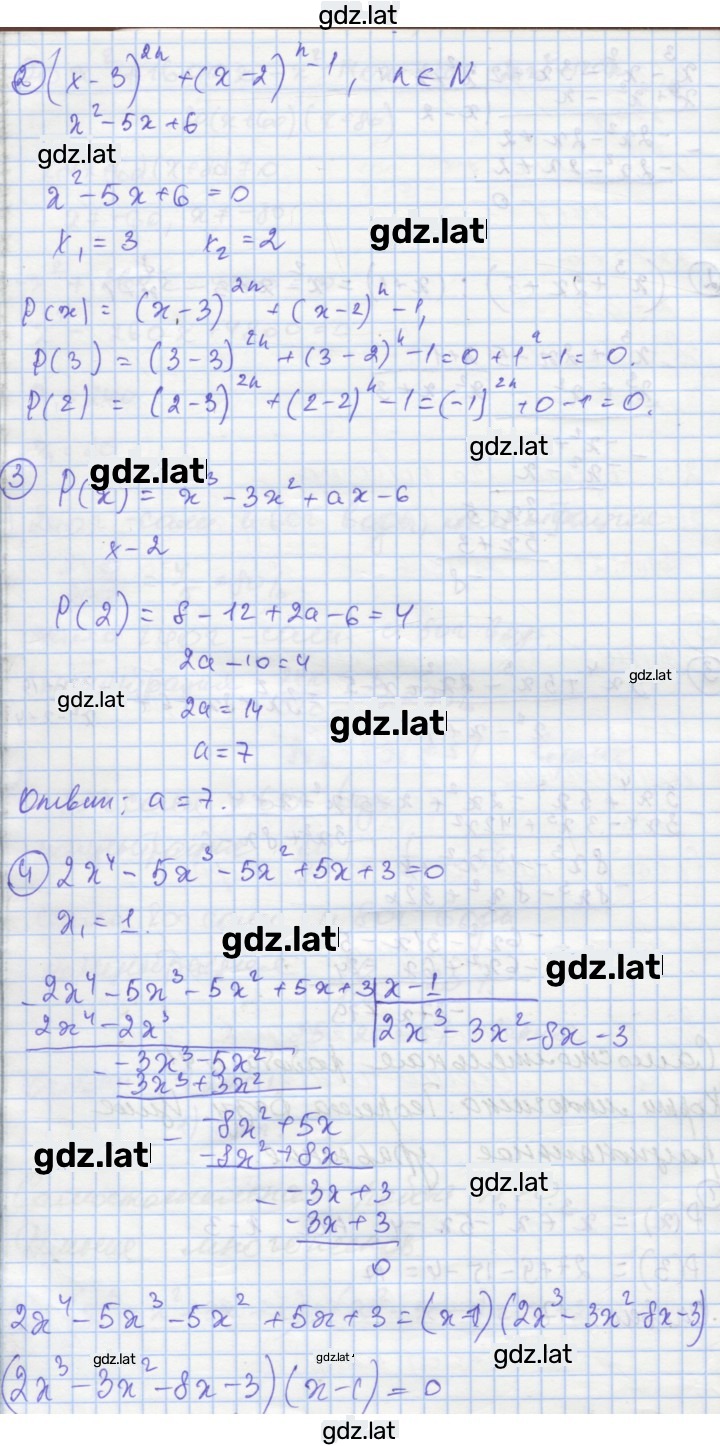 gdz.lat
② (x-3)^2n + (x-2)^n - 1, n ∈ N
x^2 - 5x + 6
gdz.lat
x^2 - 5x + 6 = 0
x_1 = 3 x_2 = 2
gdz.lat
P(x) = (x-3)^2n + (x-2)^n - 1,
P(3) = (3-3)^2n + (3-2)^n - 1 = 0 + 1^n - 1 = 0.
P(2) = (2-3)^2n + (2-2)^n - 1 = (-1)^2n + 0 - 1 = 0.
gdz.lat
gdz.lat
③ P(x) = x^3 - 3x^2 + ax - 6
x - 2
P(2) = 8 - 12 + 2a - 6 = 4
2a - 10 = 4
gdz.lat
gdz.lat
2a = 14
gdz.lat
a = 7
Ответ: a = 7.
④ 2x^4 - 5x^3 - 5x^2 + 5x + 3 = 0
x_1 = 1.
gdz.lat
gdz.lat
- 2x^4 - 5x^3 - 5x^2 + 5x + 3 | x - 1
2x^4 - 2x^3 | 2x^3 - 3x^2 - 8x - 3
- -3x^3 - 5x^2
-3x^3 + 3x^2
- -8x^2 + 5x
gdz.lat
-8x^2 + 8x
gdz.lat
- -3x + 3
-3x + 3
0
2x^4 - 5x^3 - 5x^2 + 5x + 3 = (x-1)(2x^3 - 3x^2 - 8x - 3)
gdz.lat
gdz.lat
gdz.lat
(2x^3 - 3x^2 - 8x - 3)(x-1) = 0
gdz.lat